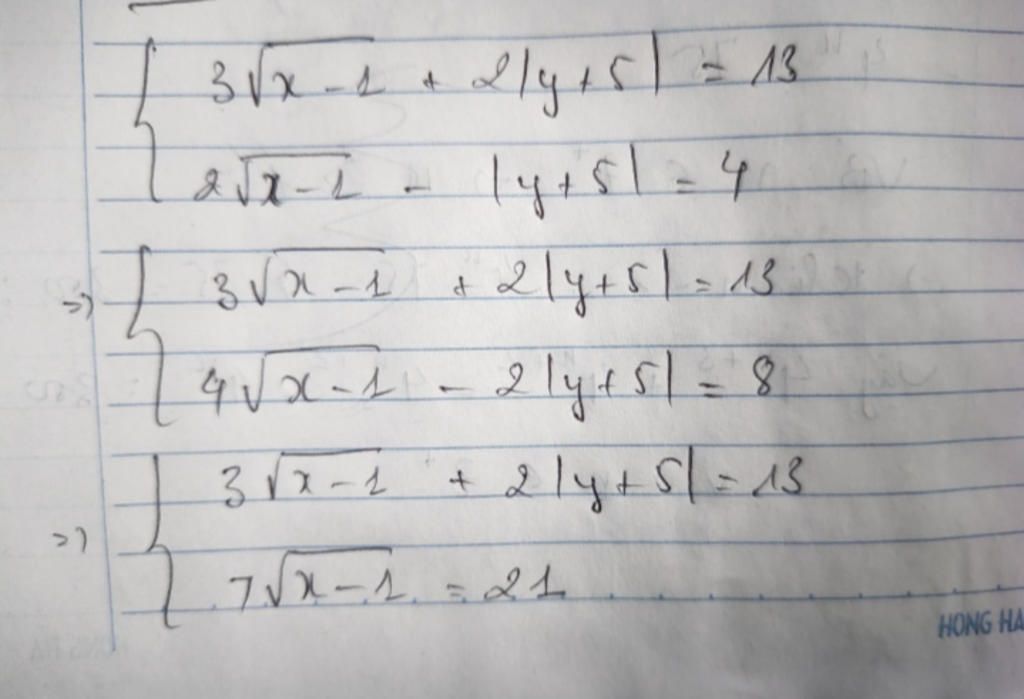 3√(x-1) + 2|y+5| = 13
2√(x-1) - |y+5| = 4
=> 3√(x-1) + 2|y+5| = 13
4√(x-1) - 2|y+5| = 8
=> 3√(x-1) + 2|y+5| = 13
7√(x-1) = 21
HONG HA